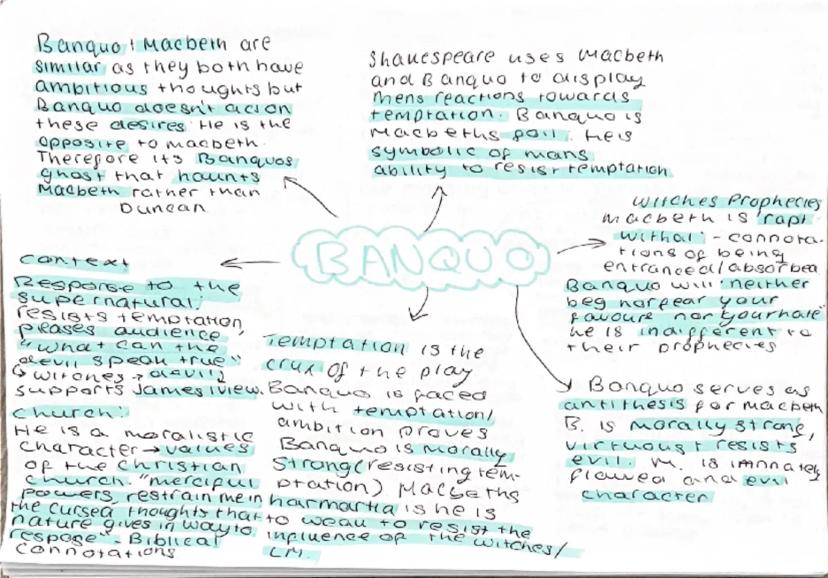 Banquo + Macbeth are
similar as they both have
ambitious thoughts but
Banquo doesn't act on
these desires. He is the
opposite to macbeth.
Therefore its Banquos
ghost that haunts
Macbeth rather than
Duncan
Shakespeare uses Macbeth
and Banquo to display
mens reactions towards
temptation. Banquo is
Macbeths foil. He is
symbolic of mans
ability to resist temptation
BANQUO
Witches Prophecies
Macbeth is "rapt
withal" - connota-
tions of being
entranced/absorbed
Banquo will "neither
beg nor fear your
favours nor your hate"
he is indifferent to
their prophecies
Context
Response to the
supernatural:
resists temptation,
pleases audience,
"what can the
devil speak true"
witches → devil,
supports James I view.
Church:
He is a moralistic
character → values
of the Christian
church. "merciful
powers restrain me in
the cursed thoughts that
nature gives in way to
respose" - Biblical
connotations
Temptation is the
crux of the play
Banquo is faced
with temptation/
ambition proves
Banquo is morally
strong (resisting tem-
ptation). Macbeths
harmartia is he is
to weak to resist the
influence of the witches/
LM.
Banquo serves as
antithesis for macbeth
B. is morally strong,
virtuous + resists
evil. M. is innately
flawed and evil
character